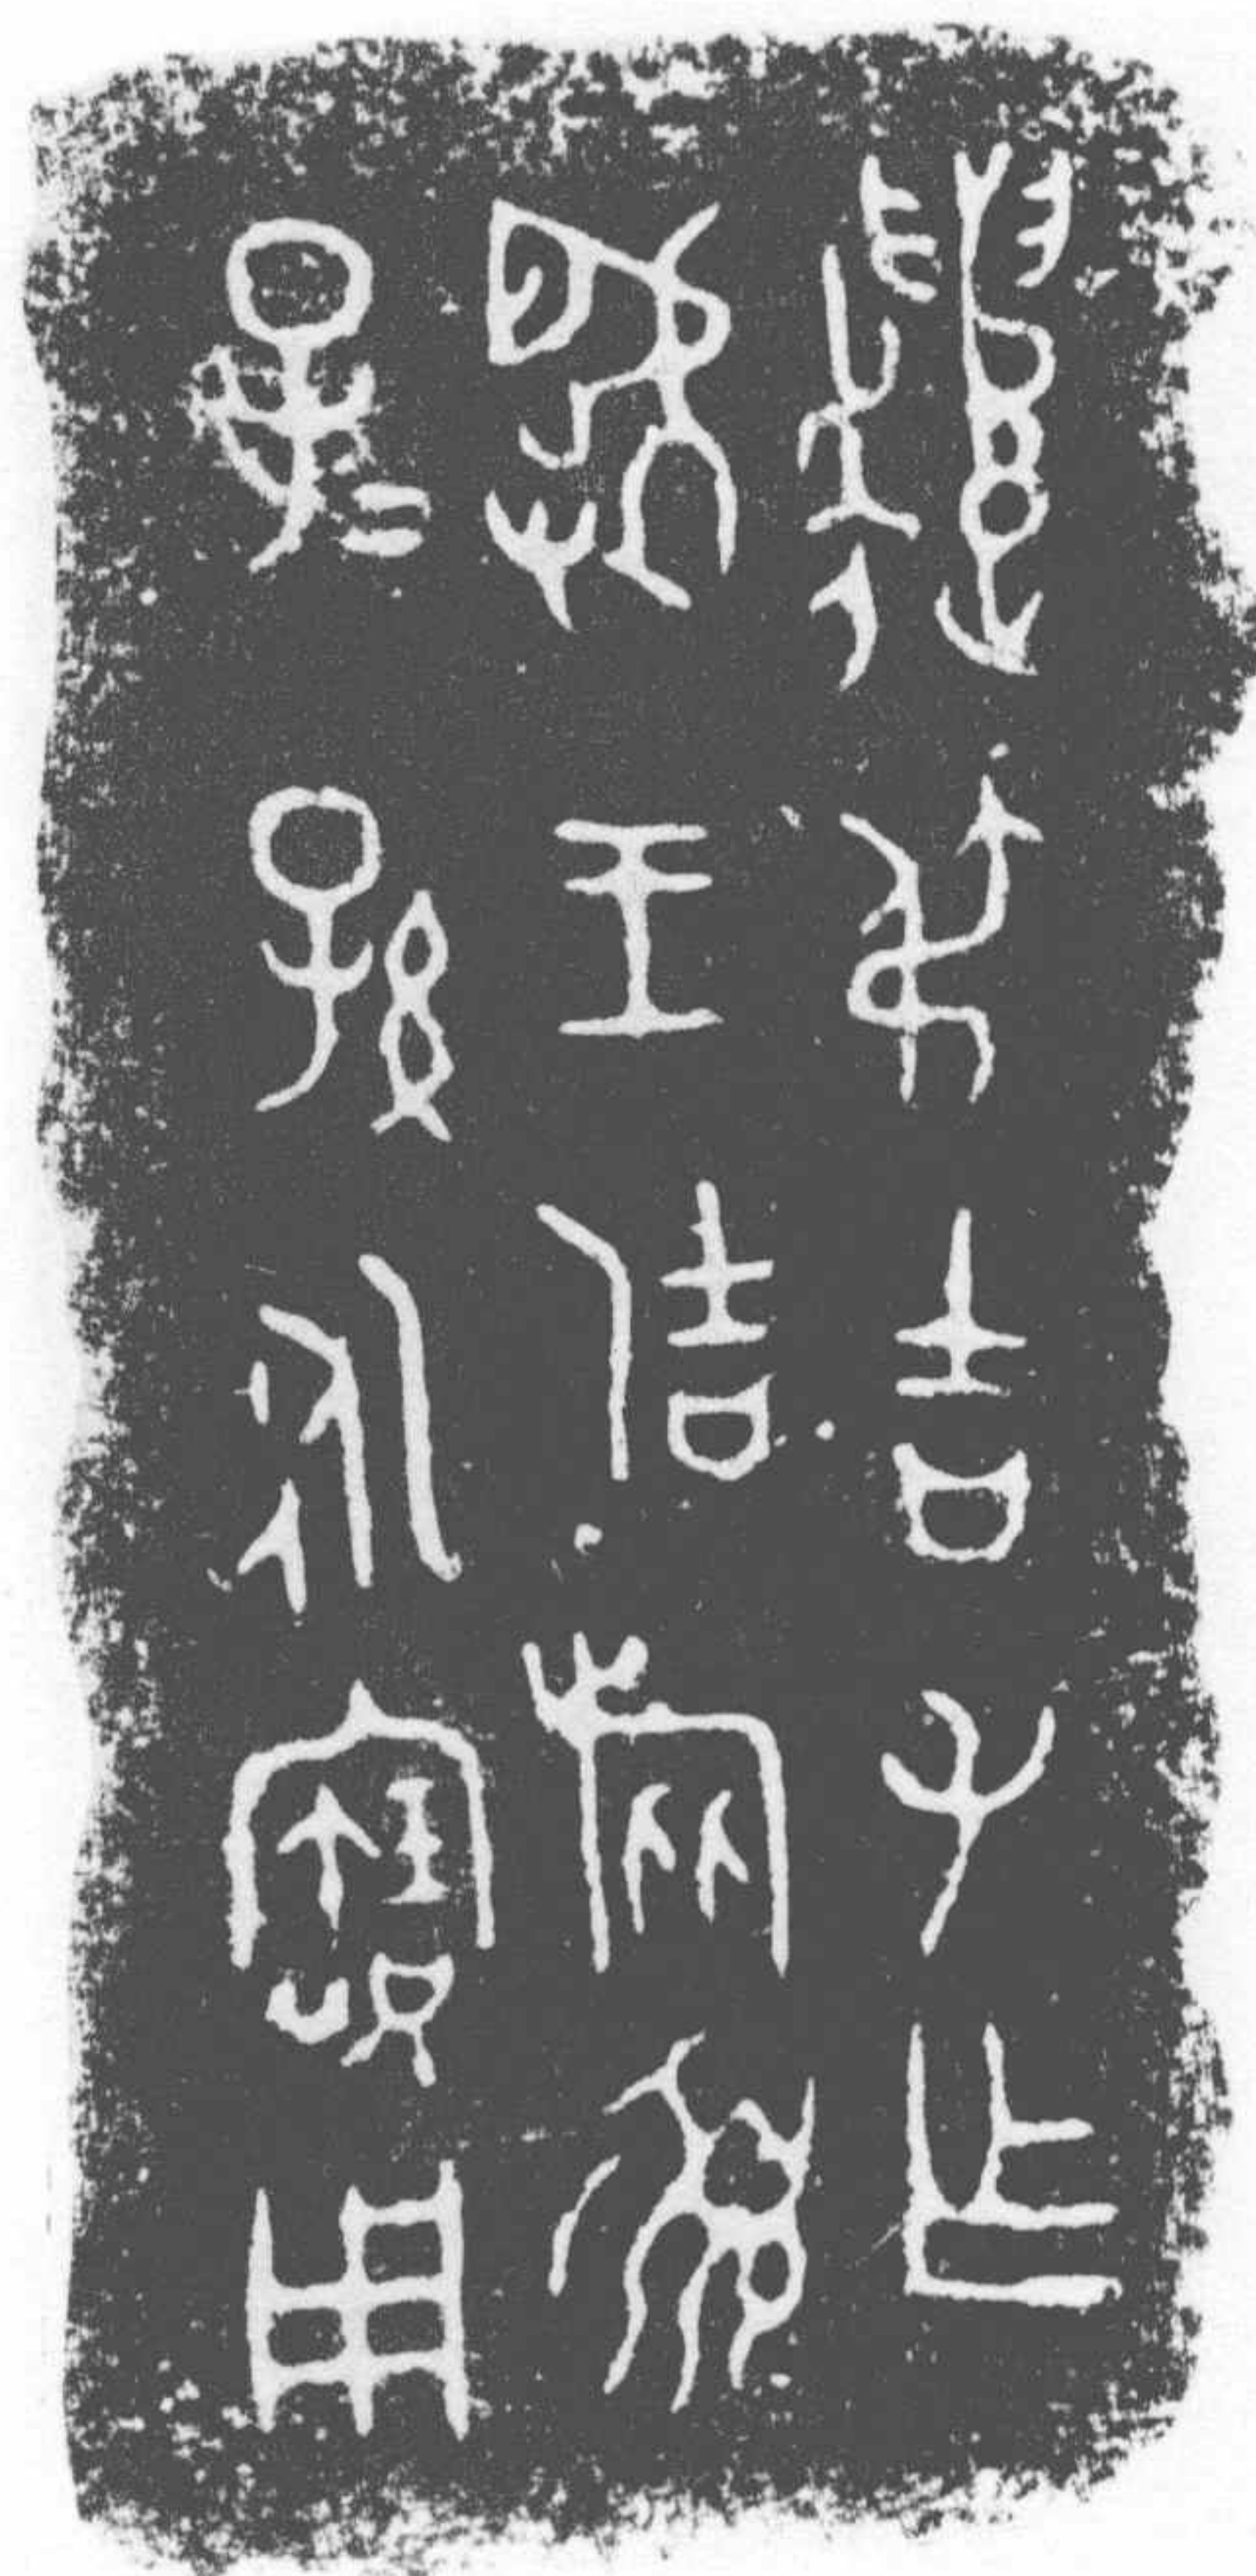 遣叔吉父作
虢王姞旅須
子=孫永寶用